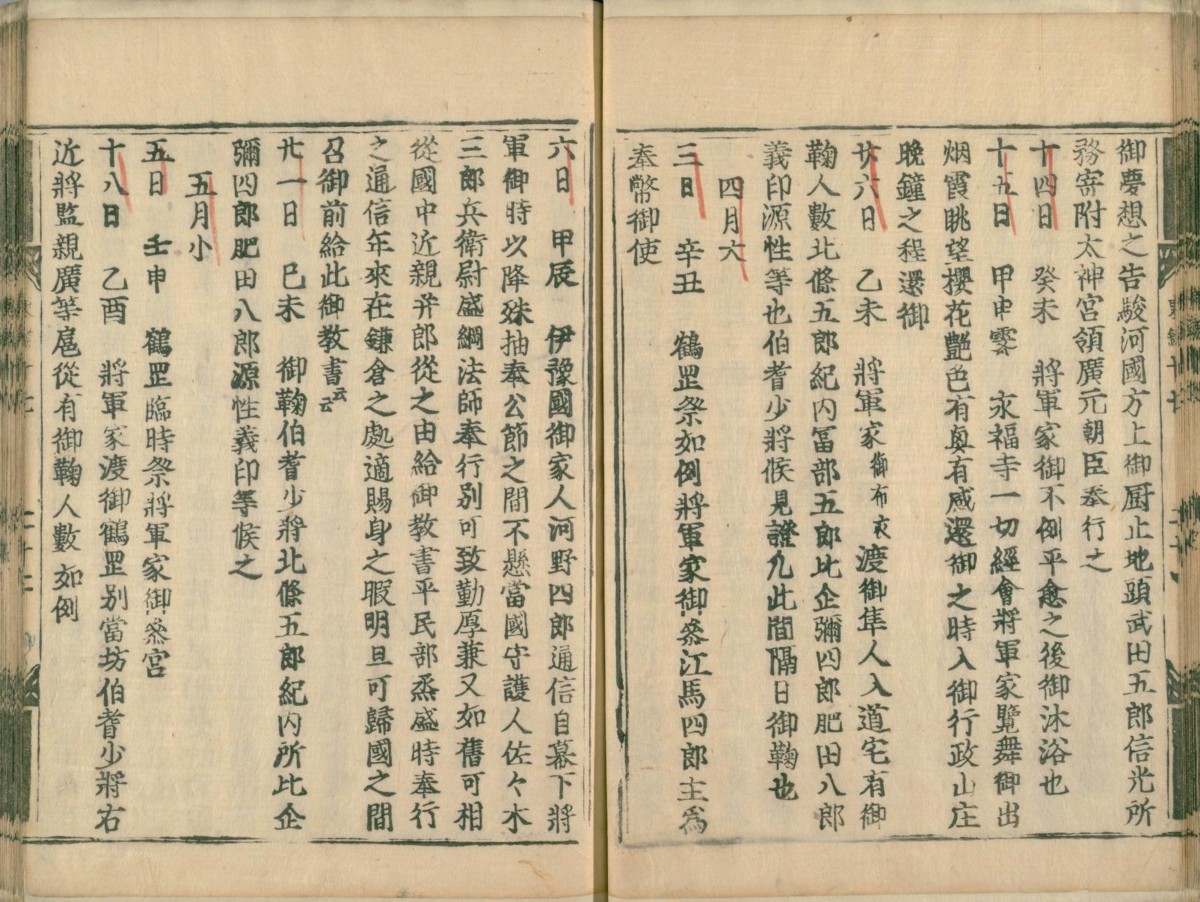 御夢想之告駿河國方上御厨止地頭武田五郎信光所
務寄附太神宮領廣元朝臣奉行之
十四日　癸未　將軍家御不例平愈之後御沐浴也
十五日　甲申霽　永福寺一切經會將軍家覽舞御出
烟霞眺望櫻花艶色有真有感還御之時入御行政山庄
晚鐘之程還御
廿六日　乙未　將軍家御布衣渡御隼人入道宅有御
鞠人數北條五郎紀内冨部五郎比企彌四郎肥田八郎
義印源性等也伯耆少將候見證凢此間隔日御鞠也
四月大
三日　辛丑　鶴罡祭如例將軍家御叅江馬四郎主爲
奉幣御使
六日　甲辰　伊豫國御家人河野四郎通信自幕下將
軍御時以降殊抽奉公節之間不懸當國守護人佐々木
三郎兵衛尉盛綱法師奉行別可致勤厚兼又如舊可相
從國中近親并郎從之由給御教書平民部烝盛時奉行
之通信年來在鎌倉之處適賜身之暇明旦可歸國之間
召御前給此御教書云云
廿一日　巳未　御鞠伯耆少將北條五郎紀内所比企
彌四郎肥田八郎源性義印等候之
五月小
五日　壬申　鶴罡臨時祭將軍家御叅宮
十八日　乙酉　將軍家渡御鶴罡別當坊伯耆少將右
近將監親廣等扈從有御鞠人數如例